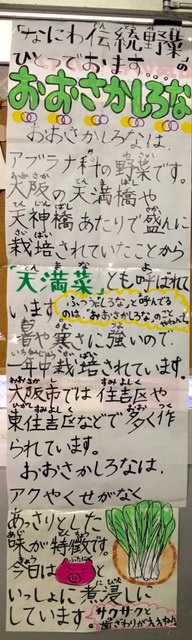 「なにわ伝統野菜」の
ひとつでおます...。
おおさかしろな
おおさかしろなは、
アブラナ科の野菜です。
大阪の天満橋や
天神橋あたりで盛んに
栽培されていたことから
「天満菜」とも呼ばれて
います。
「ふつう『しろな』と呼んでる
のは、“おおさかしろな”のことやねん。
暑さや寒さに強いので
一年中栽培されています。
大阪市では住吉区や
東住吉区などで多く作
られています。
おおさかしろなは、
アクやくせがなく
あっさりとした
味が特徴です。
今日は
といっしょに煮浸しに
しています。
サクサクと
歯ざわりがええねん